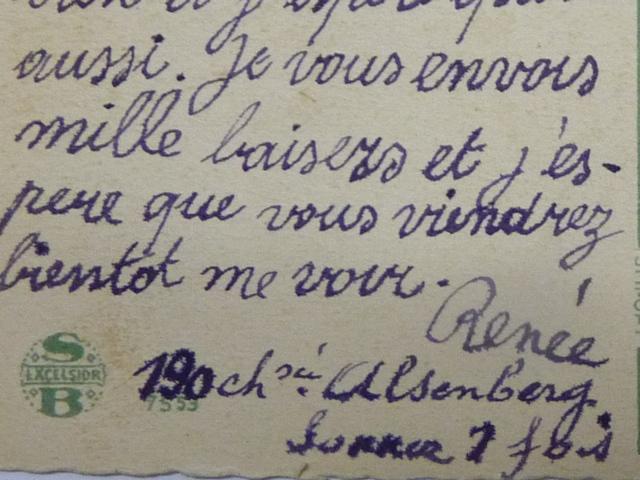 aussi. Je vous envois
mille baisers et j'es-
pere que vous viendrez
bientot me voir.
Renée
S
EXCELSIOR
B
7553
190 chsée Alsenberg
Sonnez 1 fois